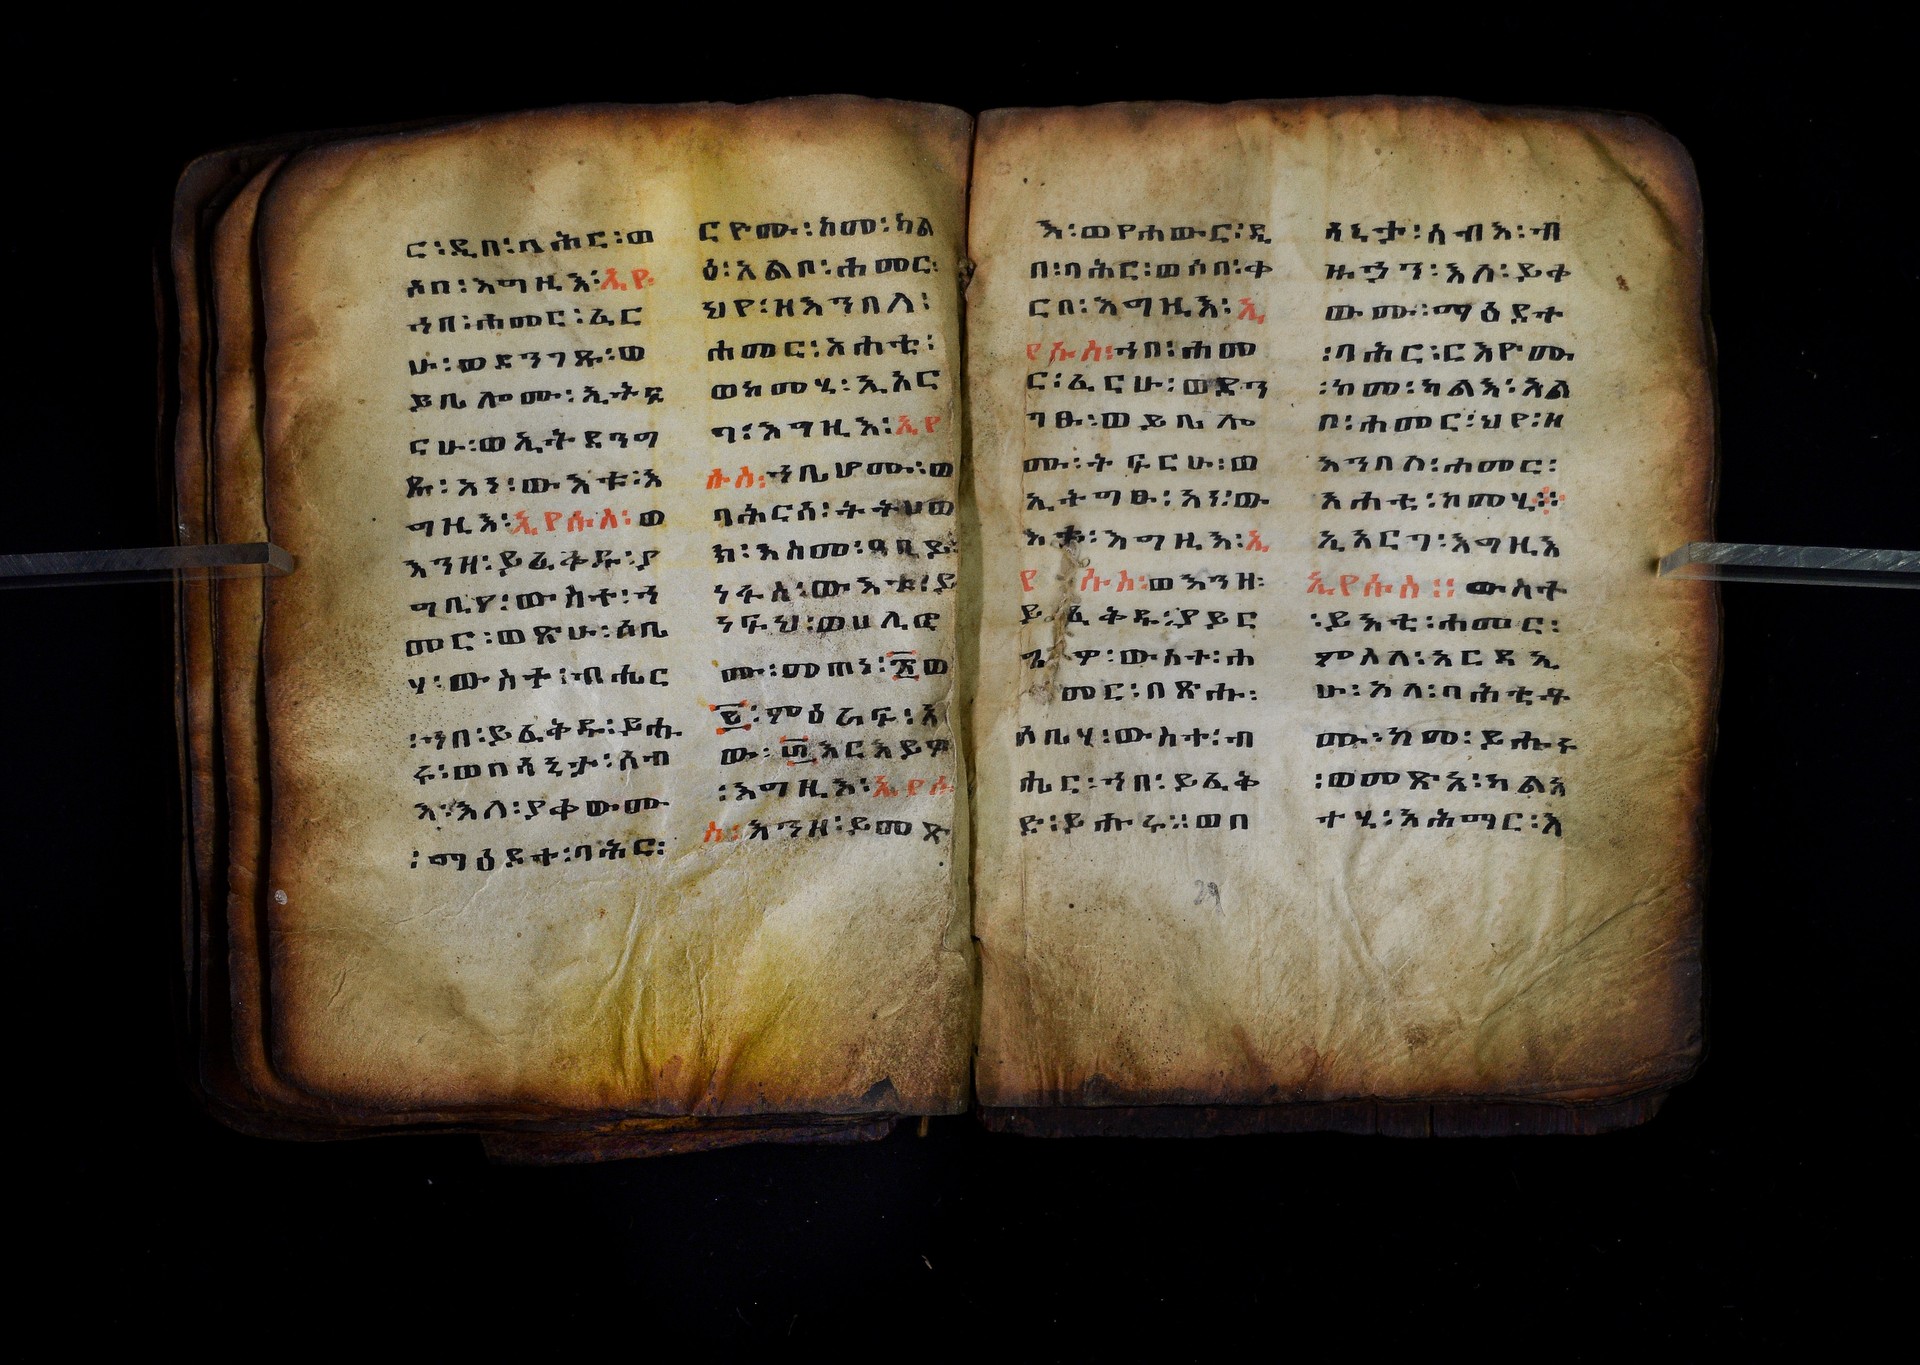 ር፡ዲበ፡ባሕር፡ወ
ሶበ፡እግዚእ፡ኢየ
ኀበ፡ሐመር፡ፈር
ሁ፡ወደንገጹ፡ወ
ይቤሎሙ፡ኢትፍ
ርሁ፡ወኢትደንግ
ጹ፡አነ፡ውእቱ፡እ
ግዚእ፡ኢየሱስ፡ወ
እንዘ፡ይፈቅዱ፡ያ
ግቢዎ፡ውስተ፡ሐ
መር፡ወጽሁ፡ሶቤ
ሃ፡ውስተ፡ብሔር
፡ኀበ፡ይፈቅዱ፡ይሑ
ሩ፡ወበሳኒታ፡ሰብ
እ፡እለ፡ያቀውሙ
፡ማዕደተ፡ባሕር፡
ርዮሙ፡ከመ፡ካል
ዕ፡አልቦ፡ሐመር፡
ህየ፡ዘእንበለ፡
ሐመር፡አሐቲ፡
ወከመሂ፡ኢአር
ገ፡እግዚእ፡ኢየ
ሱስ፡ኀቤሆሙ፡ወ
ባሕርሰ፡ትትሀወ
ክ፡እስመ፡ዓቢይ፡
ነፋስ፡ውእቱ፡ይ
ነፍህ፡ወሀሊዊ
ሙ፡መጠነ፡፳ወ
፭፡ምዕራፍ፡እ
ው፡፴እርእይዎ
፡እግዚእ፡ኢየሱ
ስ፡እንዘ፡ይመጽ
እ፡ወየሐውር፡ዲ
በ፡ባሕር፡ወሶበ፡ቀ
ርበ፡እግዚእ፡ኢ
የሱስ፡ኀበ፡ሐመ
ር፡ፈርሁ፡ወደን
ገፁ፡ወይቤሎ
ሙ፡ትፍርሁ፡ወ
ኢትግፁ፡አነ፡ው
እቱ፡እግዚእ፡ኢ
የሱስ፡ወእንዘ፡
ይፈቅዱ፡ያይር
ግዎ፡ውስተ፡ሐ
መር፡በጽሑ፡
ሶቤሃ፡ውስተ፡ብ
ሔር፡ኀበ፡ይፈቅ
ድ፡ይሑሩ።ወበ
ሳኒታ፡ሰብእ፡ብ
ዙኃን፡እለ፡ይቀ
ውሙ፡ማዕደተ
፡ባሕር፡ርእዮሙ
፡ከመ፡ካልእ፡አል
ቦ፡ሐመር፡ህየ፡ዘ
እንበለ፡ሐመር፡
አሐቲ፡ከመሂ፡፡
ኢአርገ፡እግዚእ
ኢየሱስ፡፡ውስተ
፡ይእቲ፡ሐመር፡
ምስለ፡አርዳኢ
ሁ፡አላ፡ባሕቲቶ
ሙ፡ከመ፡ይሑሩ
፡ወመጽአ፡ካልአ
ተሂ፡አሕማር፡እ
29